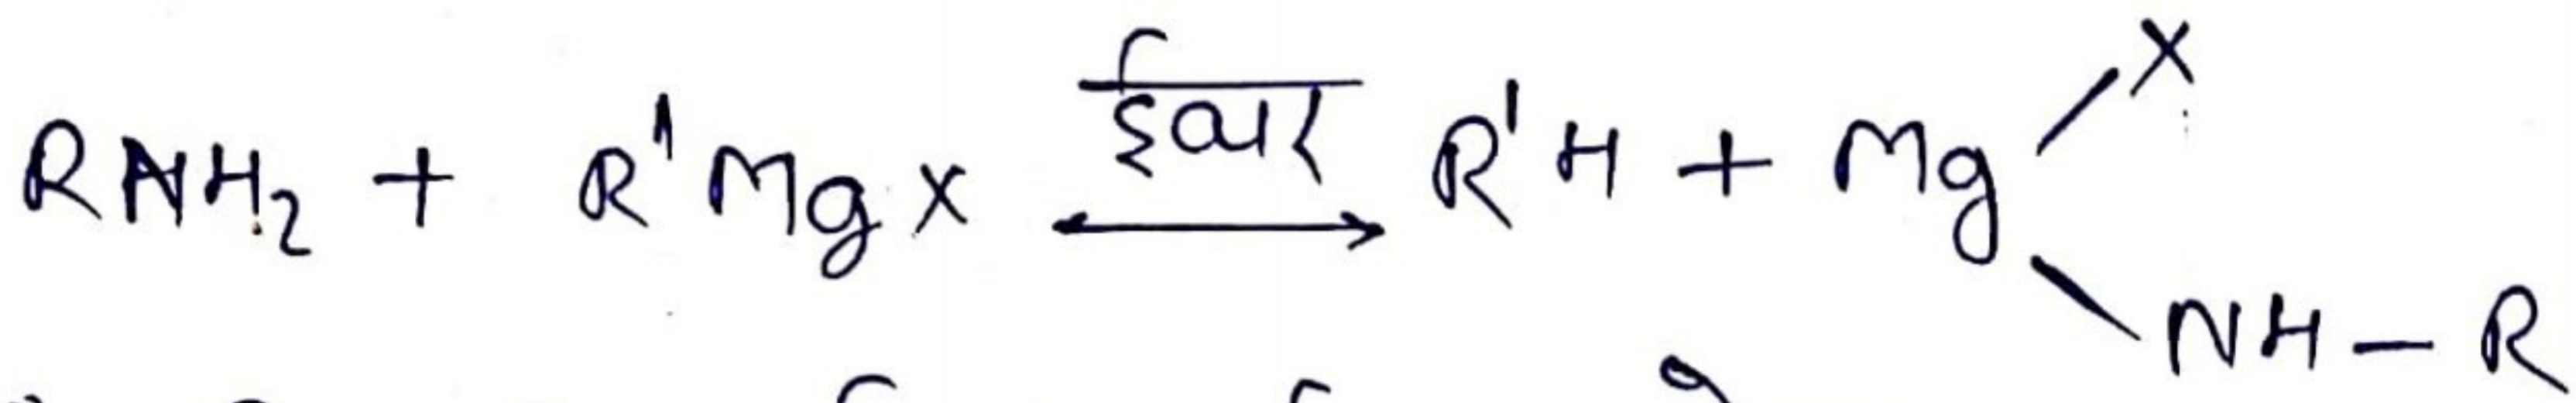 RNH₂ + R'MgX ⟷ ईथर R'H + Mg
X
NH – R